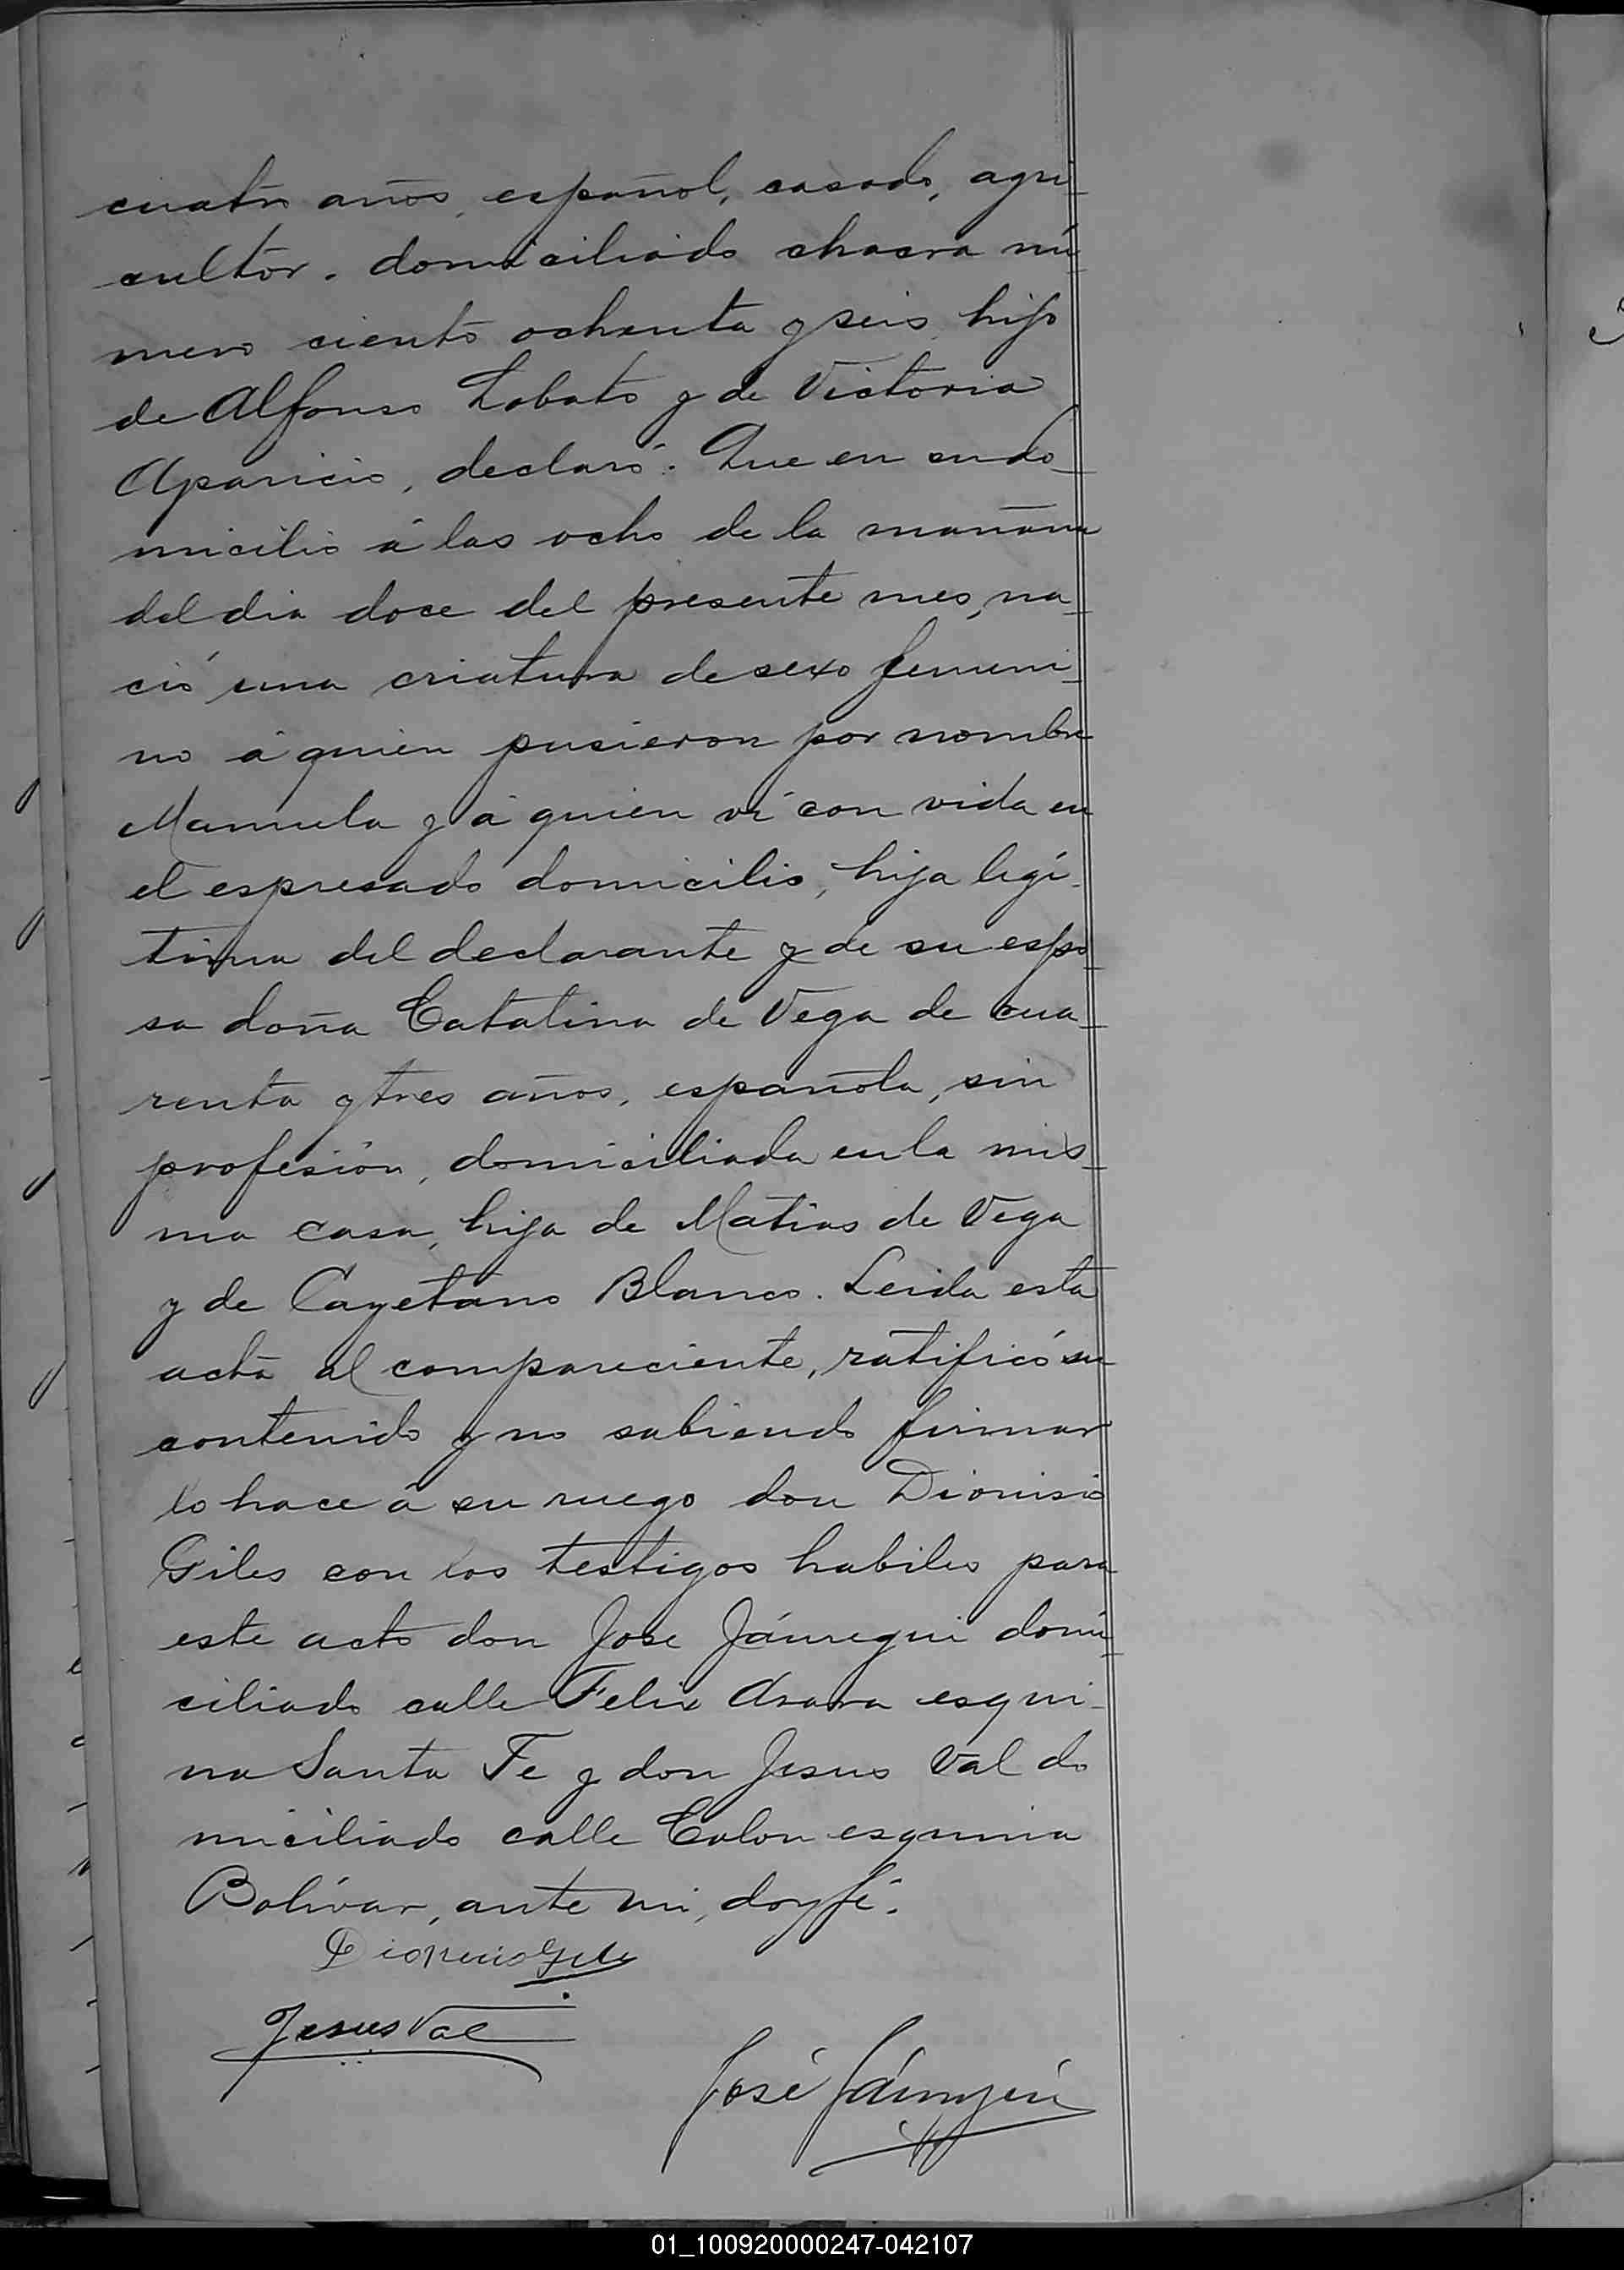 cuatro años, español, casado, agri
cultor, domiciliado chacra nú
mero ciento ochenta y seis, hijo
de Alfonso Lobato y de Victoria
Aparicio, declaró: Que en su do
micilio á las ocho de la mañana
del dia doce del presente mes, na
ció una criatura de sexo femeni
no á quien pusieron por nombre
Manuela y á quien ví con vida en
el espresado domicilio, hija legí
tima del declarante y de su espo
sa doña Catalina de Vega de cua
renta y tres años, española, sin
profesión, domiciliada en la mis
ma casa, hija de Matias de Vega
y de Cayetano Blanco. Leida esta
acta al compareciente, ratificó su
contenido y no sabiendo firmar
lo hace á su ruego don Dionisio
Giles con los testigos habiles para
este acto don Jose Jáuregui domi
ciliado calle Felix Azara esqui
na Santa Fe y don Jesus Val do
miciliado calle Colon esquina
Bolívar, ante mi, doy fé.
Dionisio Giles
Jesus Val
José Jáuregui
01_100920000247-042107